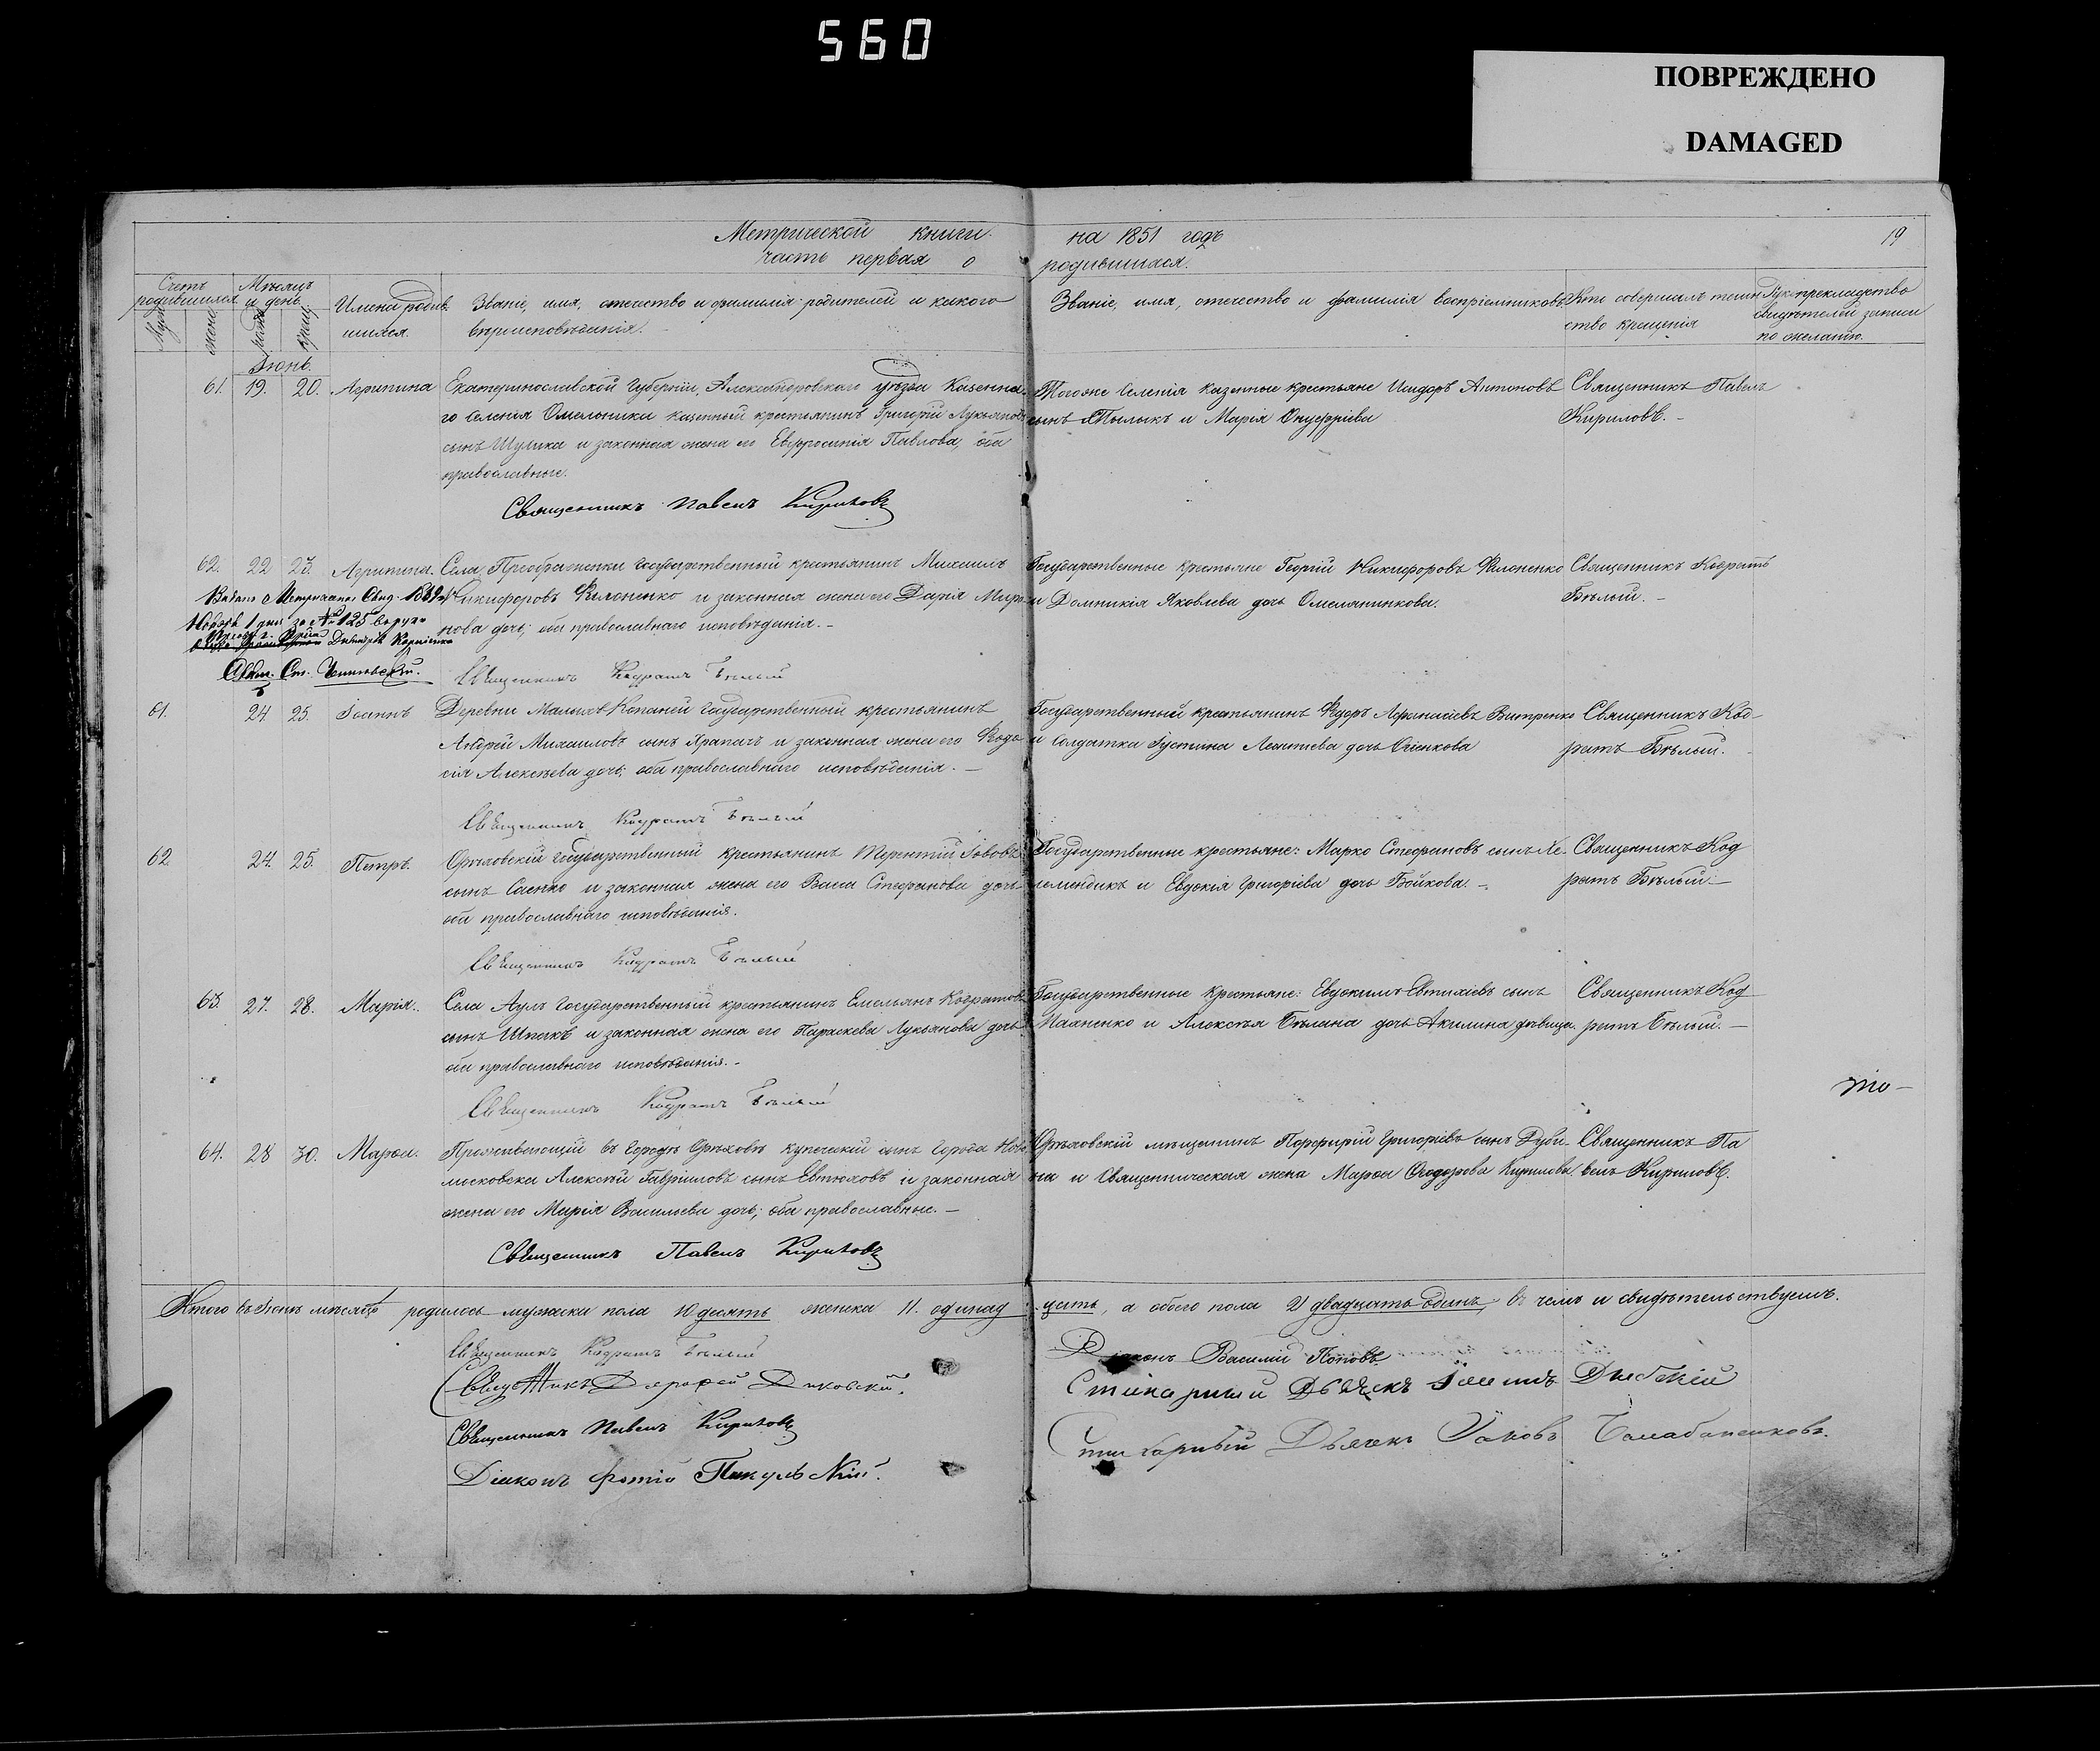 560
ПОВРЕЖДЕНО
DAMAGED
Метрической книги на 1851 годъ
19
часть первая о родившихся.
Счетъ родившихся
Мѣсяцъ и день
Имена родившихся.
Званіе, имя, отечество и фамилія родителей и какого
вѣроисповѣданія.
Званіе, имя, отечество и фамилія воспріемниковъ
Кто совершалъ таин
ство крещенія
свидѣтелей записи
по желанію.
Іюнь.
61. 19. 20. Агрипина
Екатеринославской Губерніи, Александровскаго уѣзда Казенна
го Селенія Омельника казенный крестьянинъ Григорій Лукьяновъ
сынъ Шулика и законная жена его Евфросинія Павлова, оба
православные.
Тогоже Селенія казенные крестьяне Исидоръ Антоновъ
сынъ и Марія Онуфріева
Священникъ Павелъ
Кириловъ. -
Священникъ Павелъ Кириловъ
62. 22 23. Агрипина.
Села Преображенки государственный крестьянинъ Михаилъ
Никифоровъ Филоненко и законная жена его Дарія Миро
нова дочь; оба православнаго исповѣданія. -
Государственные крестьяне Георгій Никифоровъ Филоненко
и Домникія Яковлева дочь Омелянинкова.
Священникъ Кодратъ
Бѣлый. -
за № 125
Священникъ Кодратъ Бѣлый
61. 24. 25. Іоаннъ
Деревни Малыхъ Копаней государственный крестьянинъ
Андрей Михаиловъ сынъ Храпачъ и законная жена его Ѳеодо
сія Алексѣева дочь; оба православнаго исповѣданія. -
Государственный крестьянинъ Ѳедоръ Афанасіевъ Витренко
и Солдатка Густина Леонтіева дочь
Священникъ Код-
ратъ Бѣлый.
Священникъ Кодратъ Бѣлый
62. 24. 25. Петръ.
Орѣховскій государственный крестьянинъ Терентій Іововъ
сынъ Саенко и законная жена его Васса Стефанова дочь
оба православнаго исповѣданія.
Государственные крестьяне: Марко Стефановъ сынъ Ке-
лемендикъ и Евдокія Григоріева дочь Бойкова. -
Священникъ Код
ратъ Бѣлый. -
Священникъ Кодратъ Бѣлый
63. 27. 28. Марія.
Села Аулъ государственный крестьянинъ Емельянъ Кодратовъ
сынъ Шпакъ и законная жена его Параскева Лукьянова дочь
оба православнаго исповѣданія. -
Государственные крестьяне: Евдокимъ Евтихіевъ сынъ
Махненко и Алексѣя Бѣлана дочь Акилина дѣвица.
Священникъ Код
ратъ Бѣлый. -
Священникъ Кодратъ Бѣлый
64. 28 30. Марфа.
Проживающій въ городѣ Орѣховѣ купеческій сынъ города Ново
московска Алексѣй Гавріиловъ сынъ Евтюховъ и законная
жена его Марія Васильева дочь; оба православные. -
Орѣховскій мѣщанинъ Порфирій Григоріевъ сынъ Дуби
на и Священническая жена Марфа Ѳеодорова Кирилова
Священникъ Па
велъ Кириловъ.
Священникъ Павелъ Кириловъ
Итого въ Іюнѣ мѣсяцѣ родилось мужеска пола 10 десять женска 11. одинад
цать, а обоего пола 21 двадцать одинъ, въ чемъ и свидѣтельствуемъ.
Священникъ Кодратъ Бѣлый
Священникъ Дорофей Диковскій.
Священникъ Павелъ Кириловъ
Діаконъ Фотій Пикульскій.
Діаконъ Василій Поповъ
Стихарный Дьячекъ
Стихарный Дьячекъ Іаковъ Балабаненковъ.